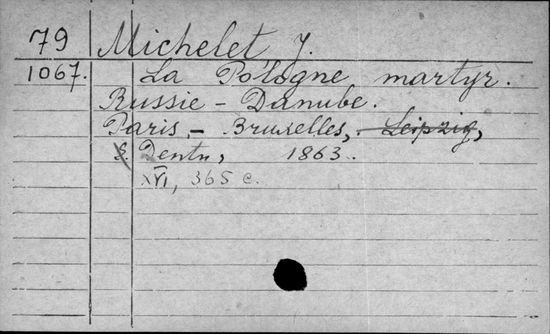 79 Michelet J.
1067. La Pologne martyr.
Russie - Danube.
Paris, - Bruxelles, Leipzig,
Dentu, 1863.
XVI, 365 c.